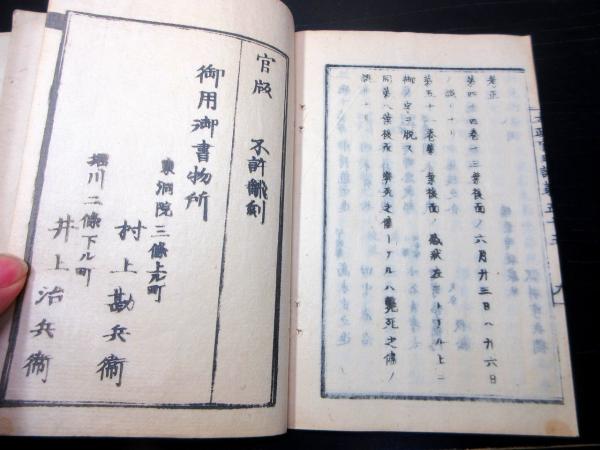 考正
第四十四巻一三葉後面ノ六月廿三日ハ廿六日
ノ誤ナリ
第五十一巻第 葉後面 在 トアル上ニ
御字ヲ脱ス
同第八葉後面 死之條トアルハ斃死之條ノ
誤ナリ
官版 不許翻刻
御用御書物所
東洞院三條上ル町
村上勘兵衛
堀川二條下ル町
井上治兵衛